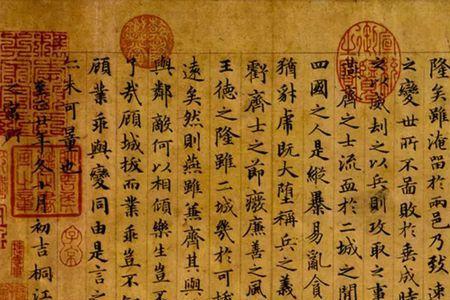 隆矣雖淹留於兩邑乃致速
之變世所不啚敗於垂成
之以威刧之以兵則攻取之事
燕齊之士流血於二城之間
四國之人是縱暴易亂
猶豺虎既大墮稱兵之義
虧齊士之節癈廉善之風
王德之隆雖二城幾於可
遠矣然則燕雖兼齊其與
與鄰敵何以相傾樂生豈不
了哉顧城拔而業乖豈不
顧業乖與變同由是言之
未可量也
年冬月初吉桐江